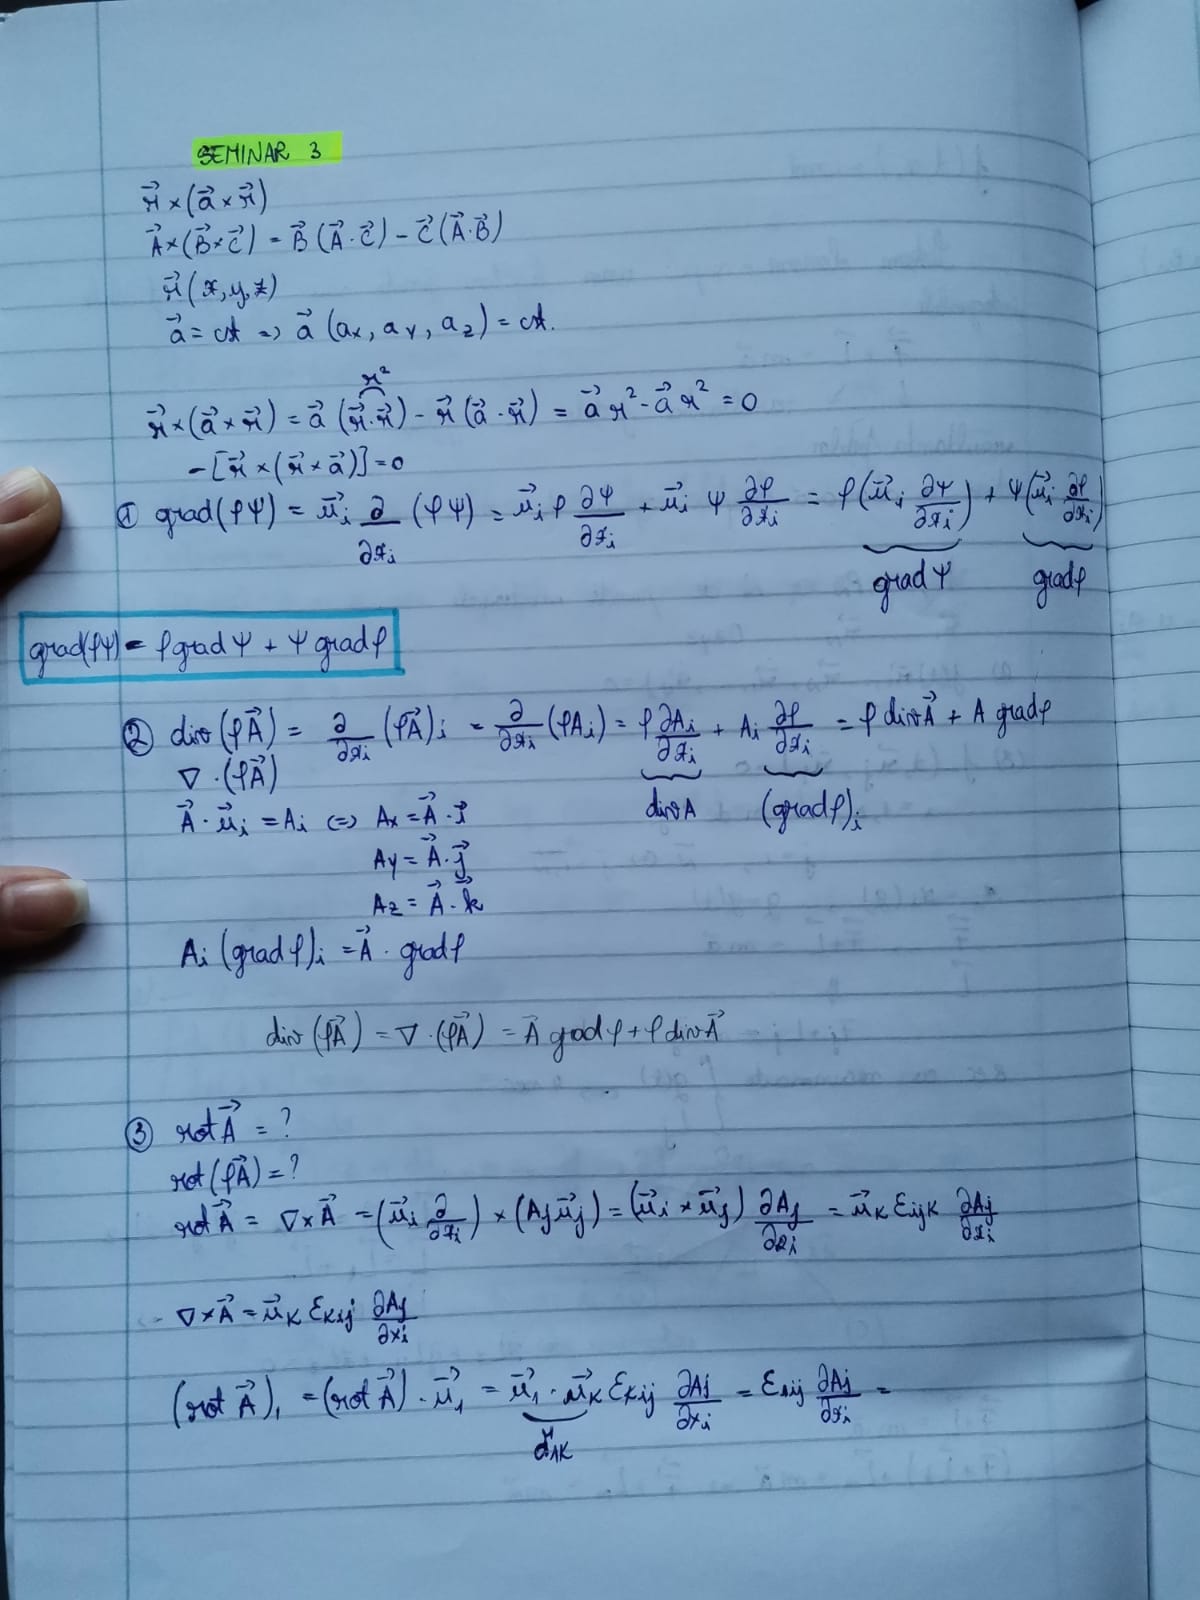 SEMINAR 3
r⃗ × (a⃗ × r⃗)
A⃗ × (B⃗ × C⃗) = B⃗ (A⃗ · C⃗) − C⃗ (A⃗ · B⃗)
r⃗ (x, y, z)
a⃗ = ct ⇒ a⃗ (ax, ay, az) = ct.
r²
r⃗ × (a⃗ × r⃗) = a⃗ (r⃗ · r⃗) − r⃗ (a⃗ · r⃗) = a⃗ r² − a⃗ r² = 0
− [r⃗ × (r⃗ × a⃗)] = 0
① grad(φψ) = u⃗i ∂/∂xi (φψ) = u⃗i φ ∂ψ/∂xi + u⃗i ψ ∂φ/∂xi = φ(u⃗i ∂ψ/∂xi) + ψ(u⃗i ∂φ/∂xi)
grad ψ grad φ
grad(φψ) = φ grad ψ + ψ grad φ
② div (φA⃗) = ∂/∂xi (φA⃗)i = ∂/∂xi (φAi) = φ ∂Ai/∂xi + Ai ∂φ/∂xi = φ div A⃗ + A grad φ
∇ · (φA⃗)
div A (grad φ)i
A⃗ · u⃗i = Ai ⇔ Ax = A⃗ · i⃗
Ay = A⃗ · j⃗
Az = A⃗ · k⃗
Ai (grad φ)i = A⃗ · grad φ
div (φA⃗) = ∇ · (φA⃗) = A⃗ grad φ + φ div A⃗
③ rot A⃗ = ?
rot (φA⃗) = ?
rot A⃗ = ∇ × A⃗ = (u⃗i ∂/∂xi) × (Aj u⃗j) = (u⃗i × u⃗j) ∂Aj/∂xi = u⃗k εijk ∂Aj/∂xi
∇ × A⃗ = u⃗k εkij ∂Aj/∂xi
(rot A⃗)1 = (rot A⃗) · u⃗1 = u⃗1 · u⃗k εkij ∂Aj/∂xi = ε1ij ∂Aj/∂xi =
δ1k